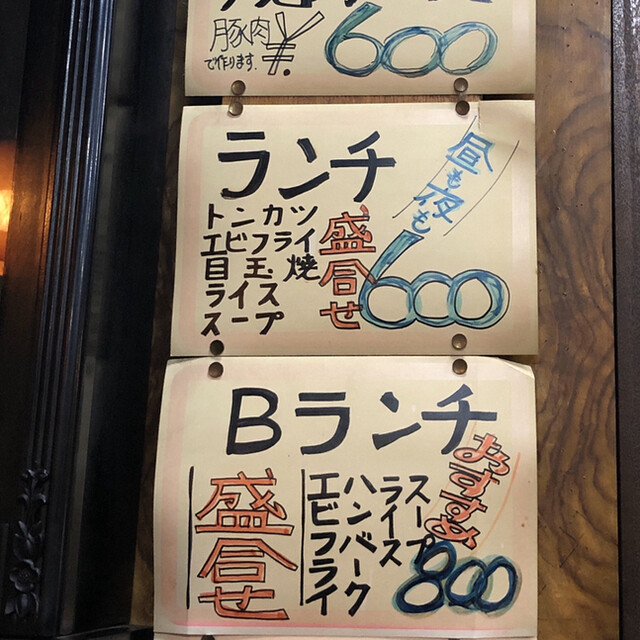 豚肉
で作ります.
¥600
ランチ
昼も夜も
トンカツ
エビフライ
目玉焼
ライス
スープ
盛合せ
600
Bランチ
おすすめ
スープ
ライス
ハンバーク
エビフライ
盛合せ
800